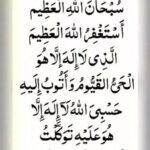 سُبْحَانَ اللهِ الْعَظِيْمِ
أَسْتَغْفِرُ اللهَ الْعَظِيْمَ
الَّذِي لَا إِلَهَ إِلَّا هُوَ
الْحَيُّ الْقَيُّوْمُ وَأَتُوْبُ إِلَيْهِ
حَسْبِيَ اللهُ لَا إِلَهَ إِلَّا
هُوَ عَلَيْهِ تَوَكَّلْتُ